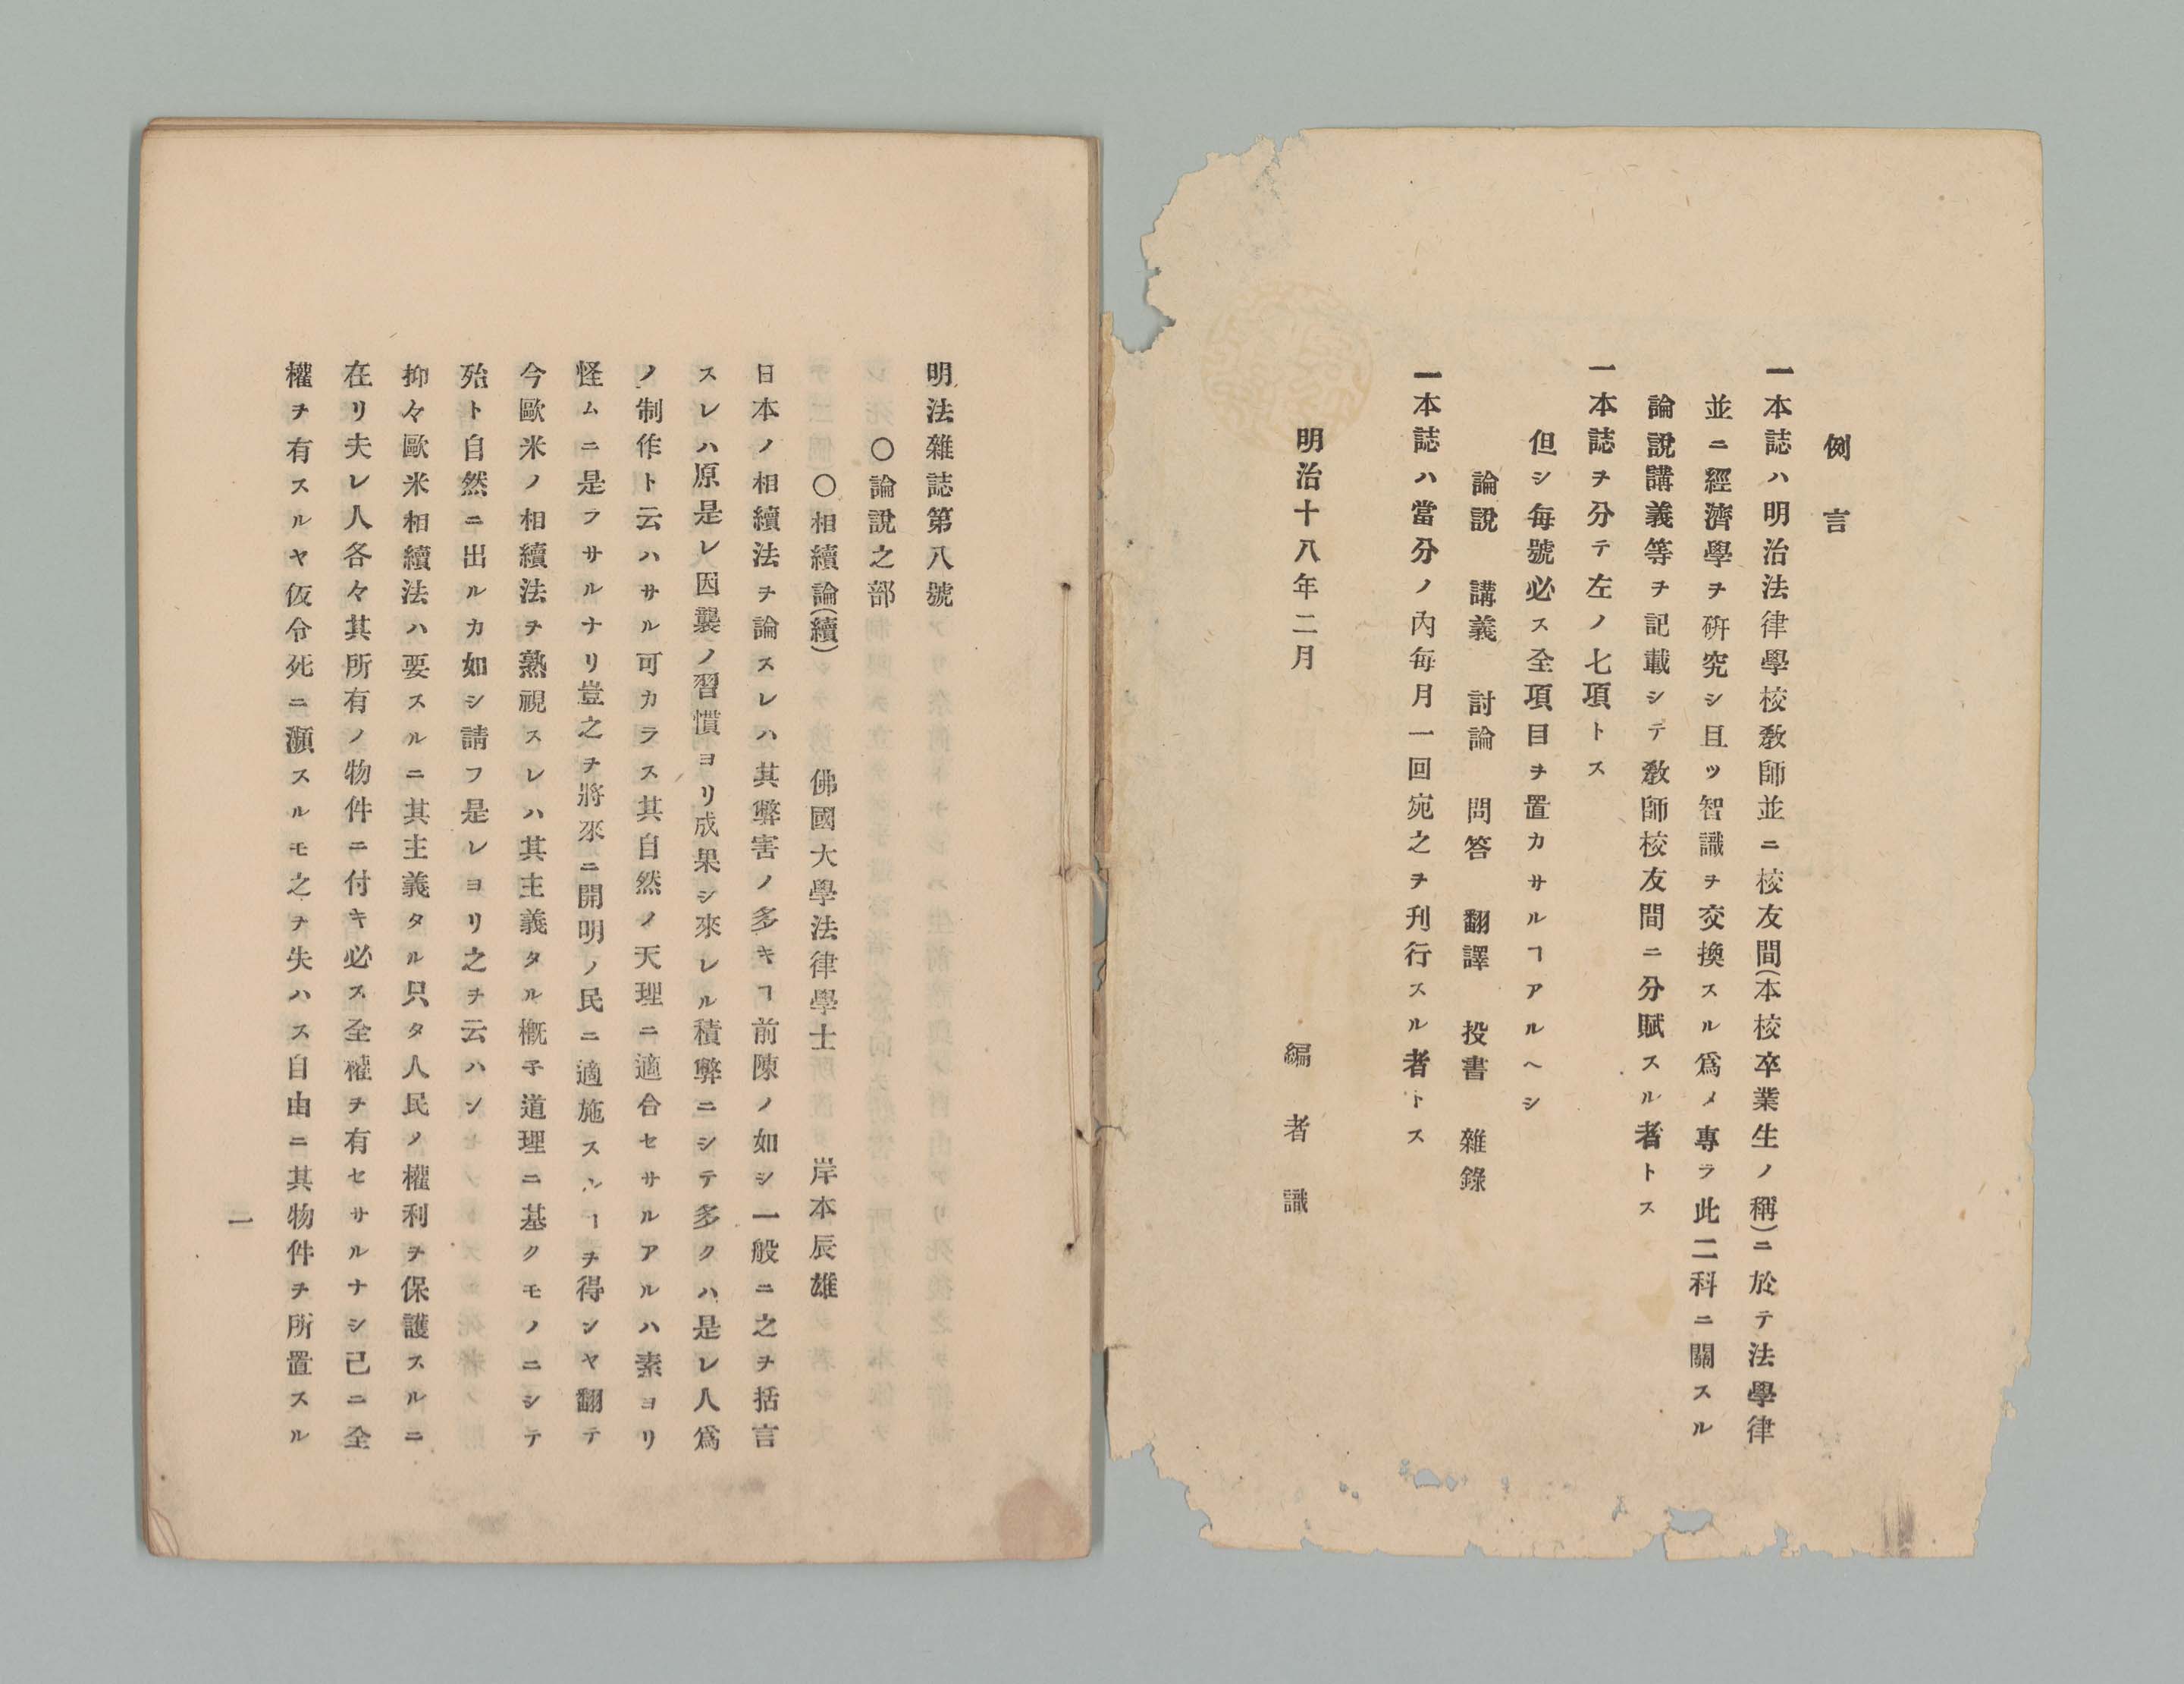 例言
一本誌ハ明治法律學校敎師並ニ校友間(本校卒業生ノ稱)ニ於テ法學律
並ニ經濟學ヲ硏究シ且ツ智識ヲ交換スル爲メ專ラ此二科ニ關スル
論說講義等ヲ記載シテ敎師校友間ニ分賦スル者トス
一本誌ヲ分テ左ノ七項トス
但シ每號必ス全項目ヲ置カサルヿアルヘシ
論說 講義 討論 問答 翻譯 投書 雜錄
一本誌ハ當分ノ內每月一回宛之ヲ刋行スル者トス
明治十八年二月
編者識
明法雜誌第八號
〇論說之部
〇相續論(續) 佛國大學法律學士 岸本辰雄
日本ノ相續法ヲ論スレハ其弊害ノ多キヿ前陳ノ如シ一般ニ之ヲ括言
スレハ原是レ因襲ノ習慣ヨリ成果シ來レル積弊ニシテ多クハ是レ人爲
ノ制作ト云ハサル可カラス其自然ノ天理ニ適合セサルアルハ素ヨリ
怪ムニ是ラサルナリ豈之ヲ將來ニ開明ノ民ニ適施スルヿヲ得ンヤ翻テ
今歐米ノ相續法ヲ熟視スレハ其主義タル槪子道理ニ基クモノニシテ
殆ト自然ニ出ルカ如シ請フ是レヨリ之ヲ云ハン
抑々歐米相續法ハ要スルニ其主義タル只タ人民ノ權利ヲ保護スルニ
在リ夫レ人各々其所有ノ物件ニ付キ必ス全權ヲ有セサルナシ己ニ全
權ヲ有スルヤ仮令死ニ瀕スルモ之ヲ失ハス自由ニ其物件ヲ所置スル
一